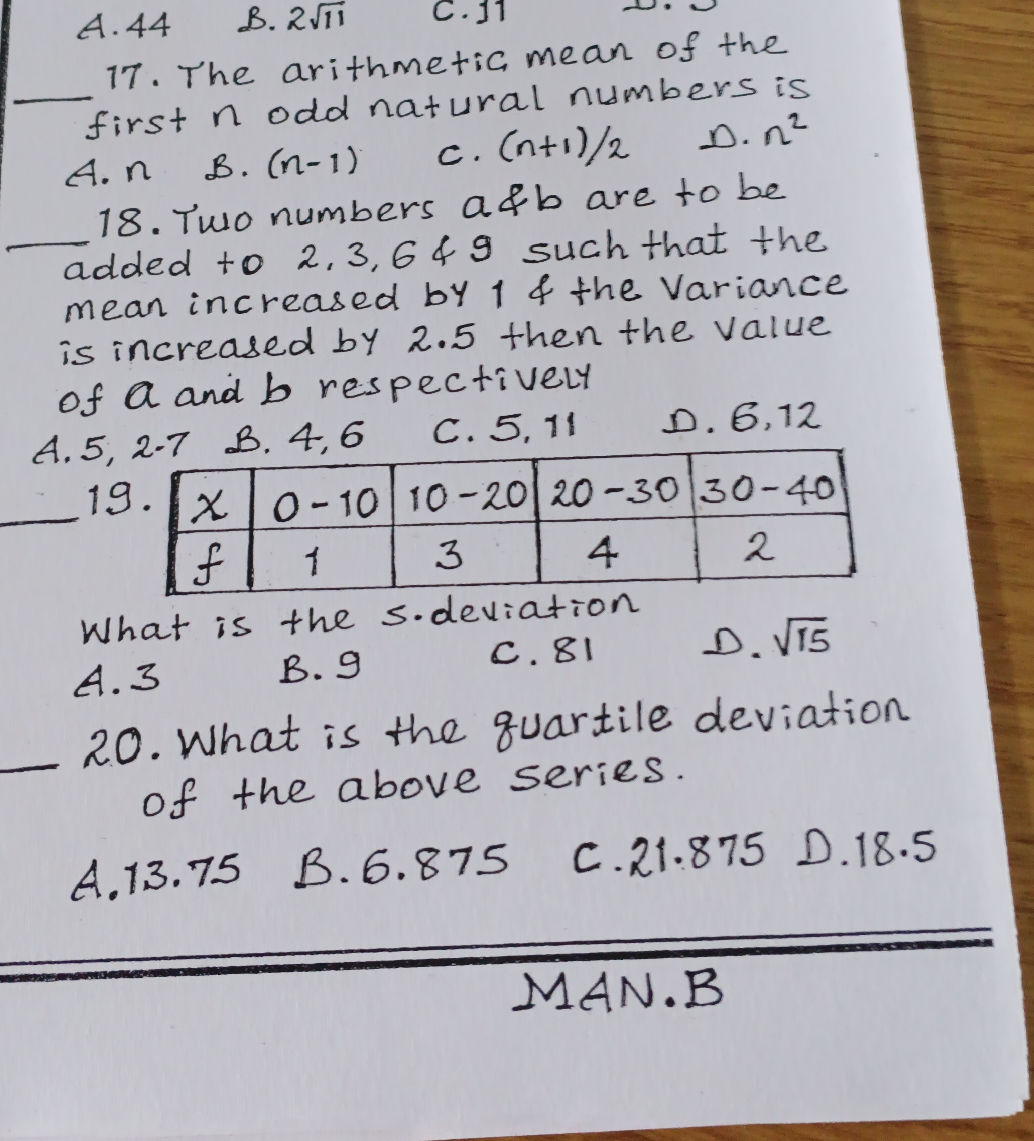 A. 44 B. 2√11 C. 11
17. The arithmetic mean of the
first n odd natural numbers is
A. n B. (n-1) C. (n+1)/2 D. n²
18. Two numbers a & b are to be
added to 2, 3, 6 & 9 such that the
mean increased by 1 & the Variance
is increased by 2.5 then the value
of a and b respectively
A. 5, 2.7 B. 4, 6 C. 5, 11 D. 6, 12
19. x 0-10 10-20 20-30 30-40
f 1 3 4 2
What is the s.deviation
A. 3 B. 9 C. 81 D. √15
20. What is the quartile deviation
of the above series.
A. 13.75 B. 6.875 C. 21.875 D. 18.5
MAN.B